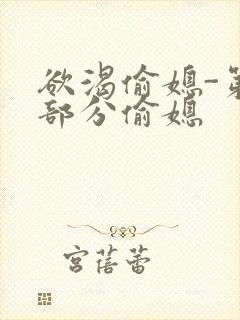 欲渴偷媳-第
部分偷媳
宫蓓蕾